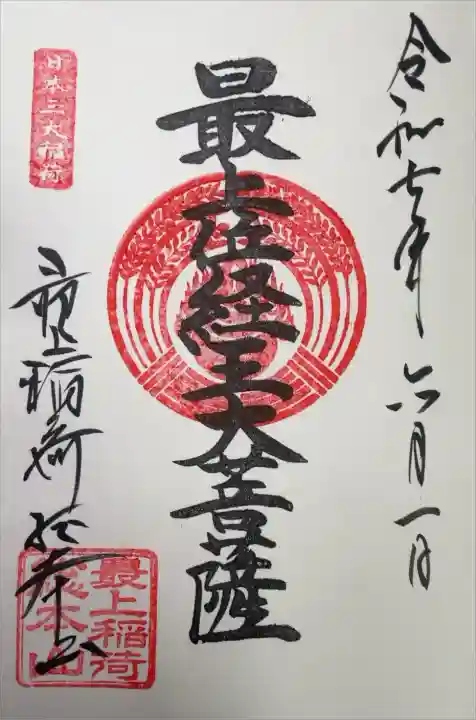 令和七年六月一日
最上位経王大菩薩
日本三大稲荷
最上稲荷総本山
最上稲荷
総本山